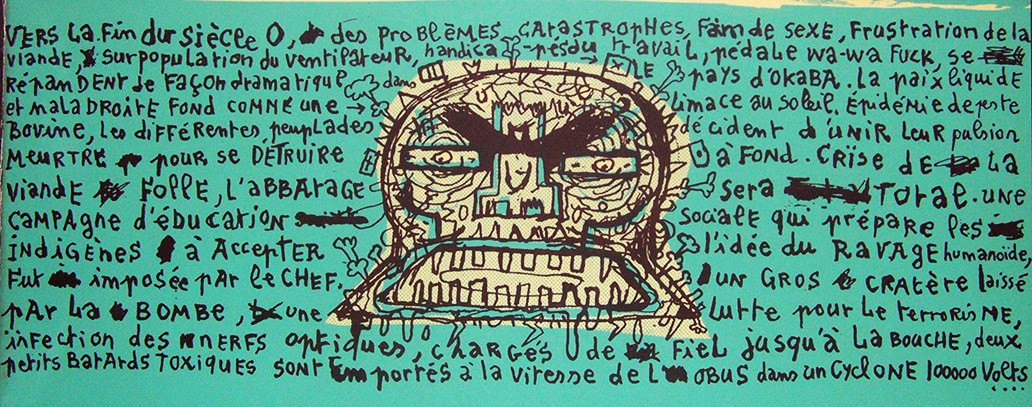 VERS la Fin du siècle 0, des problèmes, catastrophes, Faim de sexe, Frustration de la
viande, surpopulation du ventilateur, handicapés du travail, pédale wa-wa Fuck, se
RépanDENT de Façon dramatique dans LE pays d'OKABA. La paix liquide
et malaDROITE FOND COMME une limace au soleil. Épidémie de peste
Bovine, Les différentes peuplades décident d'UNIR LEUR pulsion
MEURTRE pour se DÉTRUIRE à FOND. CRISE DE La
Viande Folle, L'abbatage sera Total. une
Campagne d'éducation sociale qui prépare les
indigènes à Accepter l'idée du RAVAGE humanoïde,
Fut imposée par le CHEF. UN GROS CRATÈRE laissé
par La BOMBE, une lutte pour le terrorisme,
infection des NERFS optiques, chargés de FIEL jusqu'à La BOUCHE, deux
petits Batards TOXIQUES SONT Emportés à la vitesse de L'OBUS dans un CYCLONE 100000 Volts